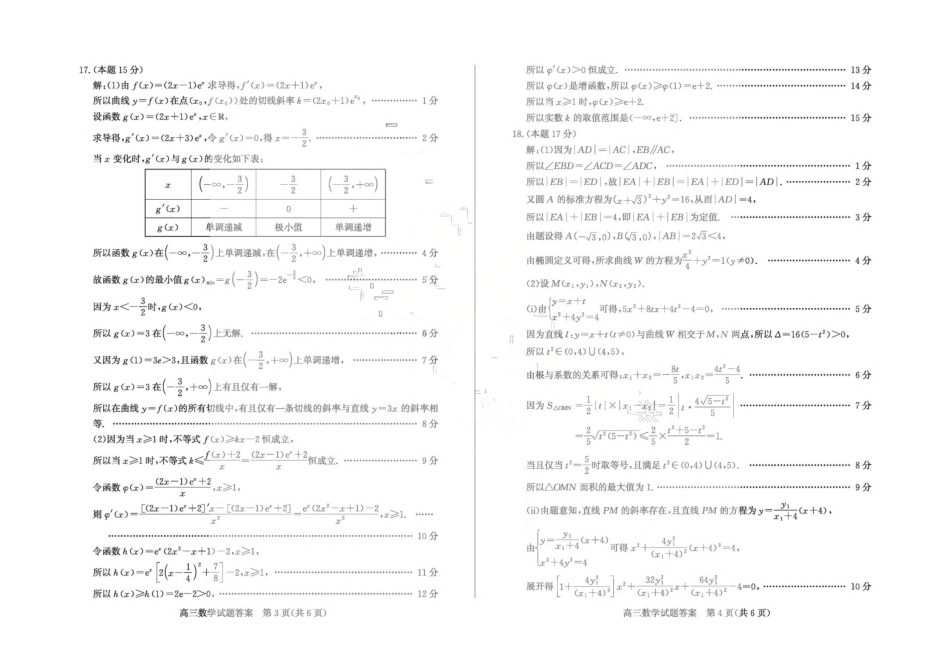 17.(本题15分)
解:(1)由 f(x)=(2x−1)eˣ 求导得,f′(x)=(2x+1)eˣ,
所以曲线 y=f(x)在点(x₀,f(x₀))处的切线斜率 k=(2x₀+1)e^{x₀}, …………… 1分
设函数 g(x)=(2x+1)eˣ,x∈R,
求导得,g′(x)=(2x+3)eˣ,令 g′(x)=0,得 x=−3/2. …………… 2分
当 x 变化时,g′(x)与 g(x)的变化如下表:
x (−∞,−3/2) −3/2 (−3/2,+∞)
g′(x) − 0 +
g(x) 单调递减 极小值 单调递增
所以函数 g(x)在(−∞,−3/2)上单调递减,在(−3/2,+∞)上单调递增, …………… 4分
故函数 g(x)的最小值 g(x)min=g(−3/2)=−2e^{−3/2}<0, …………… 5分
因为 x<−3/2时,g(x)<0,
所以 g(x)=3在(−∞,−3/2)上无解. …………… 6分
又因为 g(1)=3e>3,且函数 g(x)在(−3/2,+∞)上单调递增, …………… 7分
所以 g(x)=3在(−3/2,+∞)上有且仅有一解,
所以在曲线 y=f(x)的所有切线中,有且仅有一条切线的斜率与直线 y=3x 的斜率相
等. …………… 8分
(2)因为当 x≥1时,不等式 f(x)≥kx−2恒成立,
所以当 x≥1时,不等式 k≤(f(x)+2)/x=((2x−1)eˣ+2)/x恒成立. …………… 9分
令函数 φ(x)=((2x−1)eˣ+2)/x,x≥1,
则 φ′(x)=([(2x−1)eˣ+2]′x−[(2x−1)eˣ+2])/x²=(eˣ(2x²−x+1)−2)/x²,x≥1. ……
…………… 10分
令函数 h(x)=eˣ(2x²−x+1)−2,x≥1,
所以 h(x)=eˣ[2(x−1/4)²+7/8]−2,x≥1, …………… 11分
所以 h(x)≥h(1)=2e−2>0, …………… 12分
高三数学试题答案 第3页(共6页)
所以 φ′(x)>0恒成立. …………… 13分
所以 φ(x)是增函数,所以 φ(x)≥φ(1)=e+2. …………… 14分
所以当 x≥1时,φ(x)≥e+2.
所以实数 k 的取值范围是(−∞,e+2]. …………… 15分
18.(本题17分)
解:(1)因为|AD|=|AC|,EB∥AC,
所以∠EBD=∠ACD=∠ADC, …………… 1分
所以|EB|=|ED|,故|EA|+|EB|=|EA|+|ED|=|AD|. …………… 2分
又圆 A 的标准方程为(x+√3)²+y²=16,从而|AD|=4,
所以|EA|+|EB|=4,即|EA|+|EB|为定值. …………… 3分
由题设得 A(−√3,0),B(√3,0),|AB|=2√3<4,
由椭圆定义可得,所求曲线 W 的方程为x²/4+y²=1(y≠0). …………… 4分
(2)设 M(x₁,y₁),N(x₂,y₂).
(ⅰ)由{y=x+t x²+4y²=4可得,5x²+8tx+4t²−4=0, …………… 5分
因为直线 l:y=x+t(t≠0)与曲线 W 相交于 M,N 两点,所以 Δ=16(5−t²)>0,
所以 t²∈(0,4)∪(4,5),
由根与系数的关系可得:x₁+x₂=−8t/5,x₁x₂=(4t²−4)/5. …………… 6分
因为 S△OMN=1/2|t|×|x₁−x₂|=1/2|t·4√(5−t²)/5| …………… 7分
=2/5√(t²(5−t²))≤2/5×(t²+5−t²)/2=1.
当且仅当 t²=5/2时取等号,且满足 t²∈(0,4)∪(4,5). …………… 8分
所以△OMN 面积的最大值为1. …………… 9分
(ⅱ)由题意知,直线 PM 的斜率存在,且直线 PM 的方程为 y=y₁/(x₁+4)(x+4),
由{y=y₁/(x₁+4)(x+4) x²+4y²=4 可得 x²+4y₁²/(x₁+4)²(x+4)²=4,
展开得[1+4y₁²/(x₁+4)²]x²+32y₁²/(x₁+4)²x+64y₁²/(x₁+4)²−4=0, …………… 10分
高三数学试题答案 第4页(共6页)